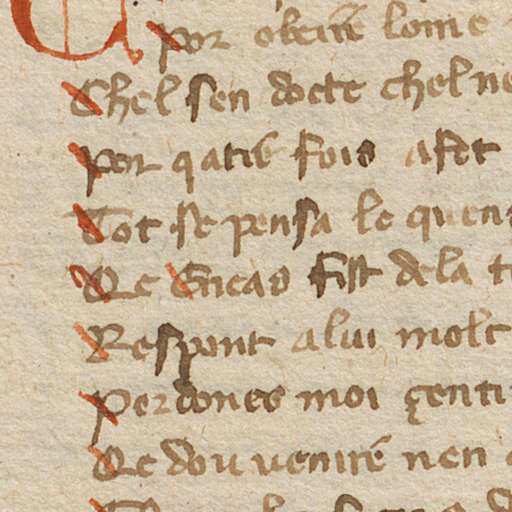 por obeire lome
Chel sen docte chel ne
por qatre fois a fet
Tot se pensa le quen
Qe Eneas fist dela t
Respont a lui molt
perdones moi genti
Qe dou venire nen